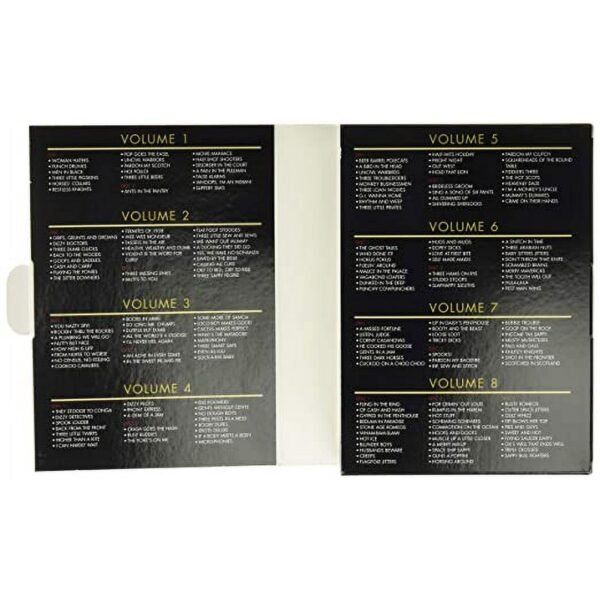 VOLUME 1
• WOMAN HATERS
• PUNCH DRUNKS
• MEN IN BLACK
• THREE LITTLE PIGSKINS
• HORSES' COLLARS
• RESTLESS KNIGHTS
• POP GOES THE EASEL
• UNCIVIL WARRIORS
• PARDON MY SCOTCH
• HOI POLLOI
• THREE LITTLE BEERS
• ANTS IN THE PANTRY
• MOVIE MANIACS
• HALF SHOT SHOOTERS
• DISORDER IN THE COURT
• A PAIN IN THE PULLMAN
• FALSE ALARMS
• WHOOPS, I'M AN INDIAN!
• SLIPPERY SILKS
VOLUME 2
• GRIPS, GRUNTS AND GROANS
• DIZZY DOCTORS
• THREE DUMB CLUCKS
• BACK TO THE WOODS
• GOOFS AND SADDLES
• CASH AND CARRY
• PLAYING THE PONIES
• THE SITTER DOWNERS
• TERMITES OF 1938
• WEE WEE MONSIEUR
• TASSELS IN THE AIR
• HEALTHY, WEALTHY AND DUMB
• VIOLENT IS THE WORD FOR
CURLY
• THREE MISSING LINKS
• MUTTS TO YOU
• FLAT FOOT STOOGES
• THREE LITTLE SEW AND SEWS
• WE WANT OUR MUMMY
• A DUCKING THEY DID GO
• YES, WE HAVE NO BONANZA
• SAVED BY THE BELLE
• CALLING ALL CURS
• OILY TO BED, OILY TO RISE
• THREE SAPPY PEOPLE
VOLUME 3
• YOU NAZTY SPY!
• ROCKIN' THRU THE ROCKIES
• A PLUMBING WE WILL GO
• NUTTY BUT NICE
• HOW HIGH IS UP?
• FROM NURSE TO WORSE
• NO CENSUS, NO FEELING
• COOKOO CAVALIERS
• BOOBS IN ARMS
• SO LONG MR. CHUMPS
• DUTIFUL BUT DUMB
• ALL THE WORLD'S A STOOGE
• I'LL NEVER HEIL AGAIN
• AN ACHE IN EVERY STAKE
• IN THE SWEET PIE AND PIE
• SOME MORE OF SAMOA
• LOCO BOY MAKES GOOD
• CACTUS MAKES PERFECT
• WHAT'S THE MATADOR?
• MATRI-PHONY
• THREE SMART SAPS
• EVEN AS IOU
• SOCK-A-BYE BABY
VOLUME 4
• THEY STOOGE TO CONGA
• DIZZY DETECTIVES
• SPOOK LOUDER
• BACK FROM THE FRONT
• THREE LITTLE TWIRPS
• HIGHER THAN A KITE
• I CAN HARDLY WAIT
• DIZZY PILOTS
• PHONY EXPRESS
• A GEM OF A JAM
• CRASH GOES THE HASH
• BUSY BUDDIES
• THE YOKE'S ON ME
• IDLE ROOMERS
• GENTS WITHOUT CENTS
• NO DOUGH BOYS
• THREE PESTS IN A MESS
• BOOBY DUPES
• IDIOTS DELUXE
• IF A BODY MEETS A BODY
• MICRO-PHONIES
VOLUME 5
• BEER BARREL POLECATS
• A BIRD IN THE HEAD
• UNCIVIL WARBIRDS
• THREE TROUBLEDOERS
• MONKEY BUSINESSMEN
• THREE LOAN WOLVES
• G.I. WANNA HOME
• RHYTHM AND WEEP
• THREE LITTLE PIRATES
• HALF-WITS HOLIDAY
• FRIGHT NIGHT
• OUT WEST
• HOLD THAT LION
• BRIDELESS GROOM
• SING A SONG OF SIX PANTS
• ALL GUMMED UP
• SHIVERING SHERLOCKS
• PARDON MY CLUTCH
• SQUAREHEADS OF THE ROUND
TABLE
• FIDDLERS THREE
• THE HOT SCOTS
• HEAVENLY DAZE
• I'M A MONKEY'S UNCLE
• MUMMY'S DUMMIES
• CRIME ON THEIR HANDS
VOLUME 6
• THE GHOST TALKS
• WHO DONE IT?
• HOKUS POKUS
• FUELIN' AROUND
• MALICE IN THE PALACE
• VAGABOND LOAFERS
• DUNKED IN THE DEEP
• PUNCHY COWPUNCHERS
• HUGS AND MUGS
• DOPEY DICKS
• LOVE AT FIRST BITE
• SELF MADE MAIDS
• THREE HAMS ON RYE
• STUDIO STOOPS
• SLAPHAPPY SLEUTHS
• A SNITCH IN TIME
• THREE ARABIAN NUTS
• BABY SITTERS JITTERS
• DON'T THROW THAT KNIFE
• SCRAMBLED BRAINS
• MERRY MAVERICKS
• THE TOOTH WILL OUT
• HULA-LA-LA
• PEST MAN WINS
VOLUME 7
• A MISSED FORTUNE
• LISTEN, JUDGE
• CORNY CASANOVAS
• HE COOKED HIS GOOSE
• GENTS IN A JAM
• THREE DARK HORSES
• CUCKOO ON A CHOO CHOO
• UP IN DAISY'S PENTHOUSE
• BOOTY AND THE BEAST
• LOOSE LOOT
• TRICKY DICKS
• SPOOKS!
• PARDON MY BACKFIRE
• RIP, SEW AND STITCH
• BUBBLE TROUBLE
• GOOF ON THE ROOF
• INCOME TAX SAPPY
• MUSTY MUSKETEERS
• PALS AND GALS
• KNUTZY KNIGHTS
• SHOT IN THE FRONTIER
• SCOTCHED IN SCOTLAND
VOLUME 8
• FLING IN THE RING
• OF CASH AND HASH
• GYPPED IN THE PENTHOUSE
• BEDLAM IN PARADISE
• STONE AGE ROMEOS
• WHAM-BAM-SLAM!
• HOT ICE
• BLUNDER BOYS
• HUSBANDS BEWARE
• CREEPS
• FLAGPOLE JITTERS
• FOR CRIMIN' OUT LOUD
• RUMPUS IN THE HAREM
• HOT STUFF
• SCHEMING SCHEMERS
• COMMOTION ON THE OCEAN
• HOOFS AND GOOFS
• MUSCLE UP A LITTLE CLOSER
• A MERRY MIX-UP
• SPACE SHIP SAPPY
• GUNS A POPPIN!
• HORSING AROUND
• RUSTY ROMEOS
• OUTER SPACE JITTERS
• QUIZ WHIZZ
• FIFI BLOWS HER TOP
• PIES AND GUYS
• SWEET AND HOT
• FLYING SAUCER DAFFY
• OIL'S WELL THAT ENDS WELL
• TRIPLE CROSSED
• SAPPY BULL FIGHTERS